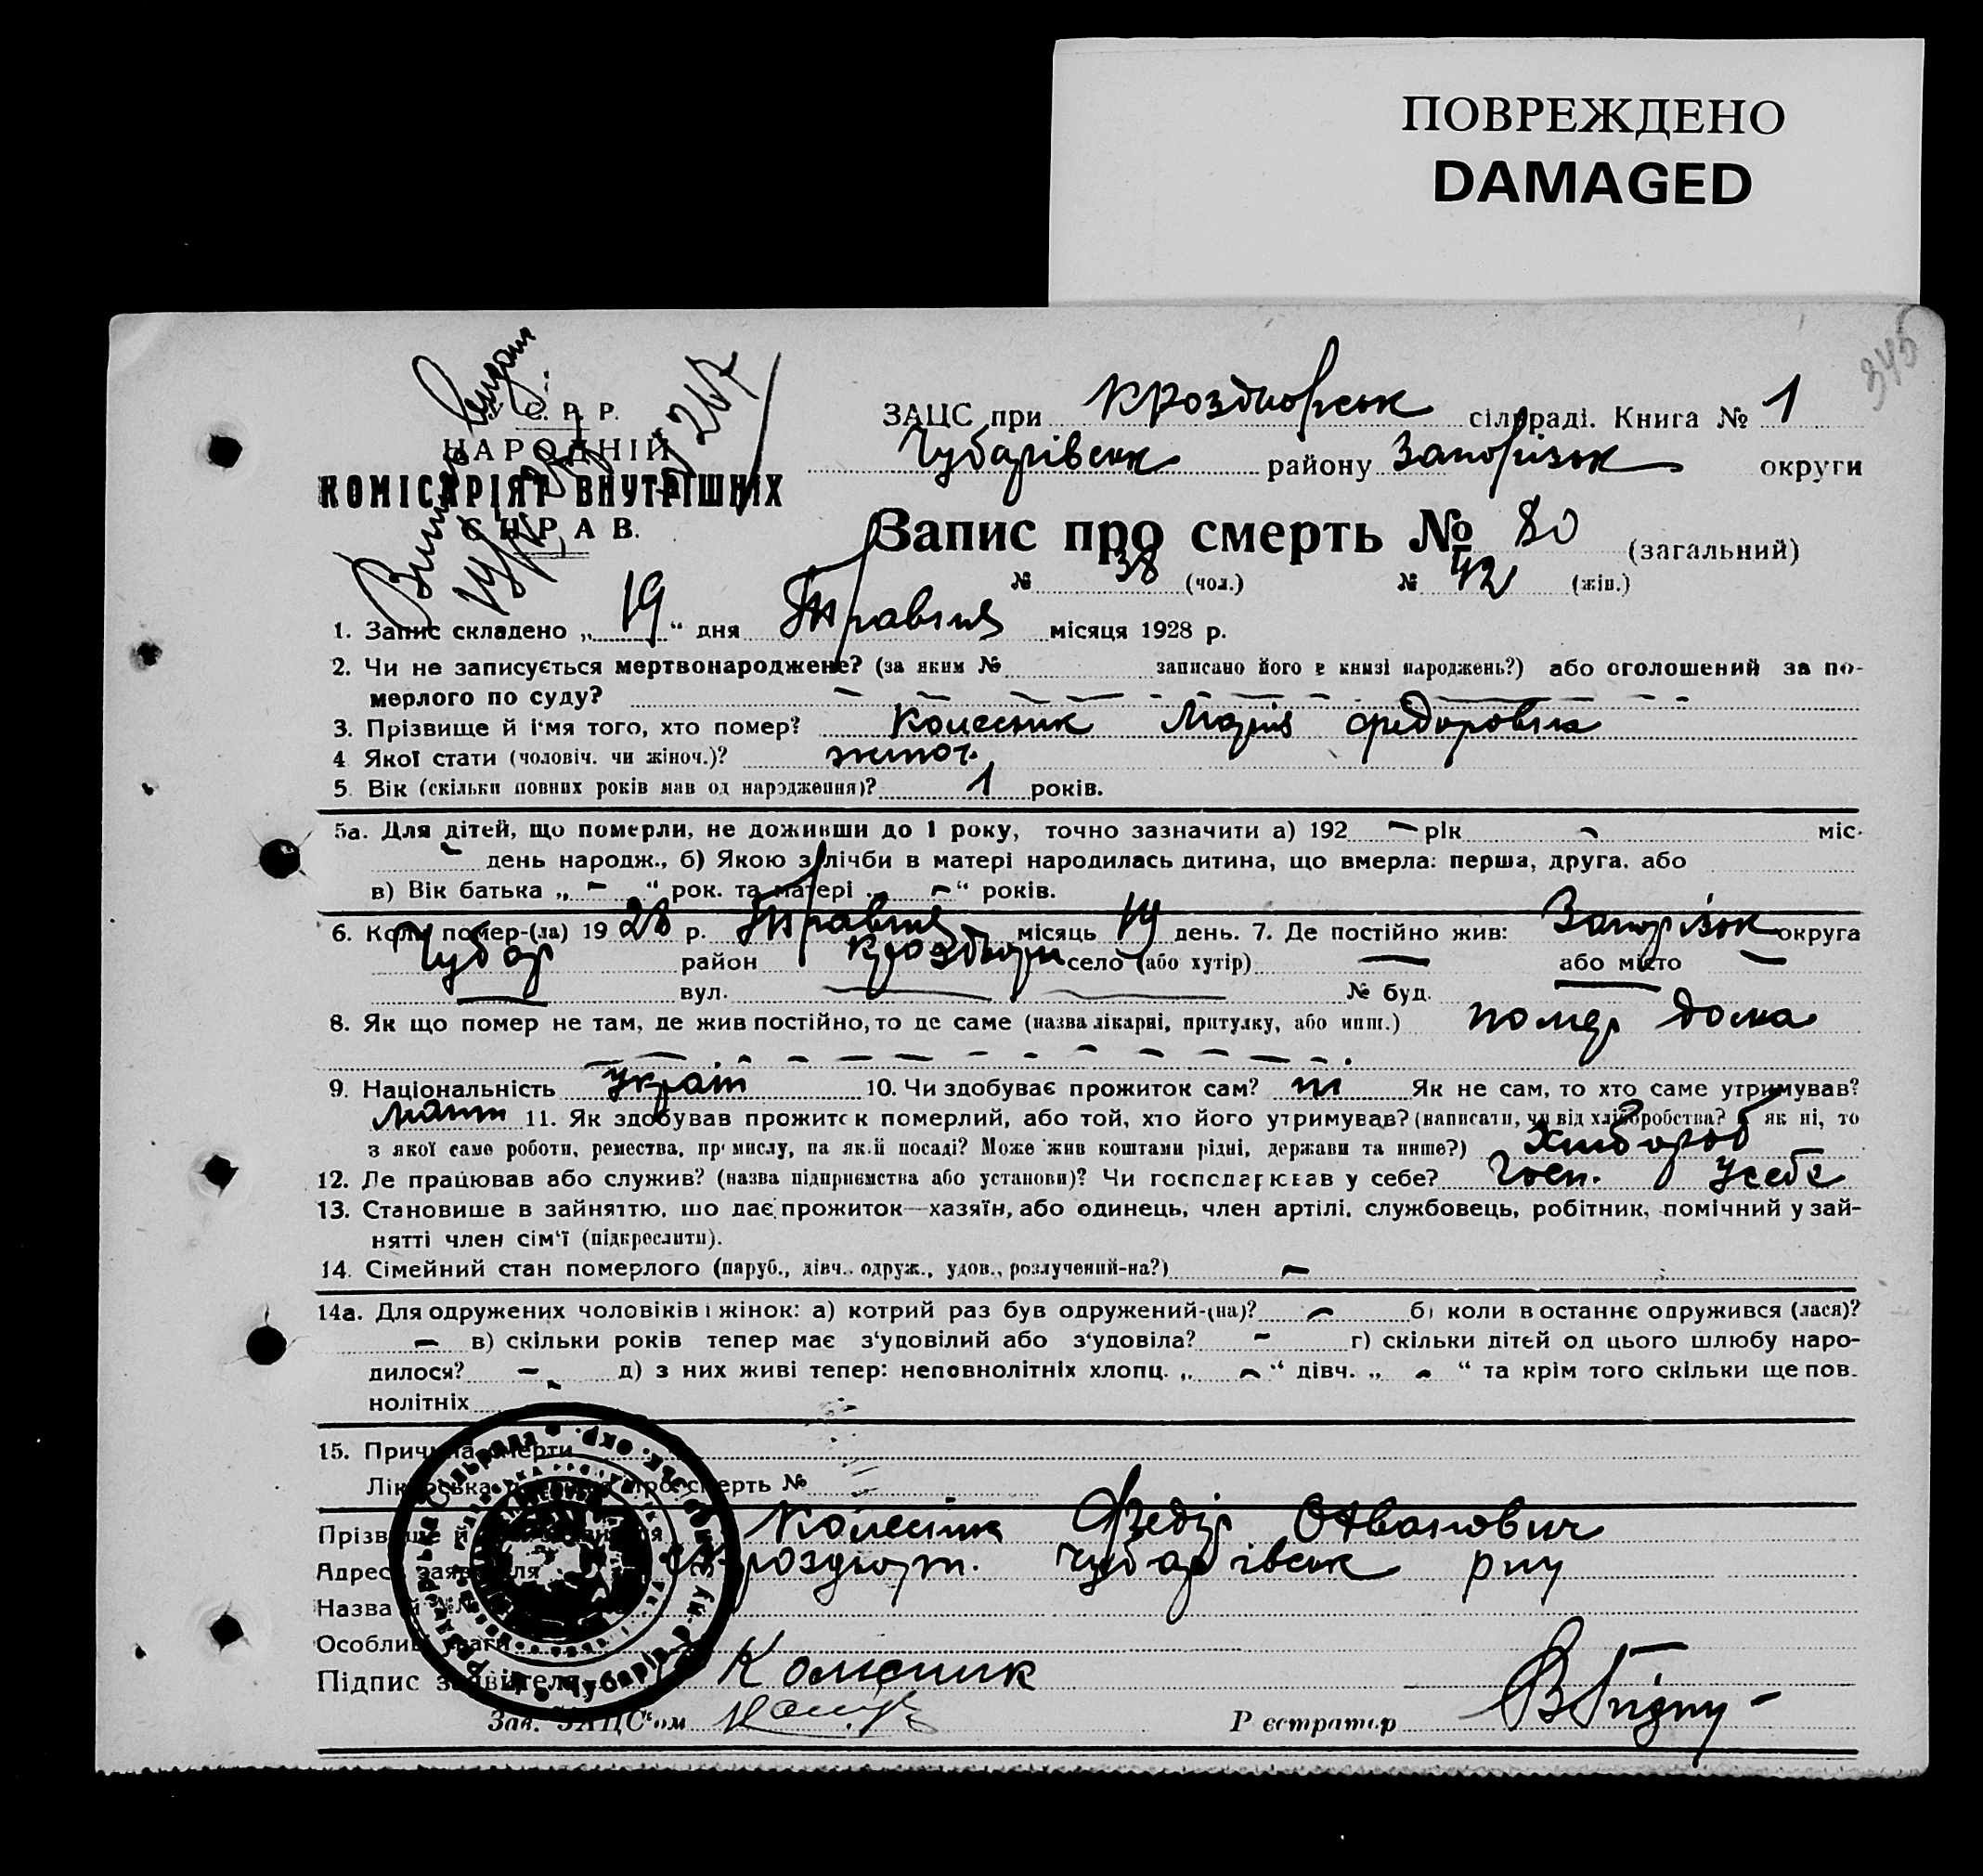 ПОВРЕЖДЕНО
DAMAGED
345
С. Р. Р.
НАРОДНІЙ
КОМІСАРІЯТ ВНУТРІШНІХ
СПРАВ.
ЗАЦС при сільраді. Книга № 1
Чубарівськ району Запорізьк округи
Запис про смерть № 80 (загальний)
№ 38 (чол.) № 42 (жін.)
1. Запис складено „ 19 “ дня Травня місяця 1928 р.
2. Чи не записується мертвонароджене? (за яким № записано його в книзі народжень?) або оголошений за по-
мерлого по суду?
3. Прізвище й ім'я того, хто помер? Колесник Марія Федоровна
4 Якої стати (чоловіч. чи жіноч.)? жіноч.
5. Вік (скільки повних років мав од народження)? 1 років.
5а. Для дітей, що померли, не доживши до 1 року, точно зазначити а) 192 — рік - міс.
- день народж., б) Якою з лічби в матері народилась дитина, що вмерла: перша, друга, або
в) Вік батька „ - “ рок. та матері „ - “ років.
6. Коли помер-(ла) 19 28 р. Травня місяць 19 день. 7. Де постійно жив: Запорізьк округа
Чубар район село (або хутір) — або місто —
— вул. — — № буд. —
8. Як що помер не там, де жив постійно, то де саме (назва лікарні, притулку, або инш.) помер дома
9. Національність Україн 10. Чи здобуває прожиток сам? ні Як не сам, то хто саме утримував?
11. Як здобував прожиток померлий, або той, хто його утримував? (написати, чи від хліборобства? як ні, то
з якої саме роботи, ремества, промислу, на якій посаді? Може жив коштами рідні, держави та инше?) Хлібороб
12. Де працював або служив? (назва підприємства або установи)? Чи господарював у себе? Госп. у себе
13. Становище в зайняттю, що дає прожиток—хазяїн, або одинець, член артілі, службовець, робітник, помічний у зай-
нятті член сім'ї (підкреслити).
14. Сімейний стан померлого (паруб., дівч., одруж., удов., розлучений-на?) -
14а. Для одружених чоловіків і жінок: а) котрий раз був одружений-(на)? - б) коли востаннє одружився (лася)?
- в) скільки років тепер має з'удовілий або з'удовіла? - г) скільки дітей од цього шлюбу наро-
дилося? - д) з них живі тепер: неповнолітніх хлопц. „ - “ дівч. „ - “ та крім того скільки ще пов.
нолітніх
15. Причина смерти
Лікарська про смерть №
Прізвище й Колесник Федір Іванович
Адреса заявителя Чубарівськ рну
Назва й №
Особливі уваги
Підпис заявителя Колесник
Зав. ЗАЦС'ом Реєстратор